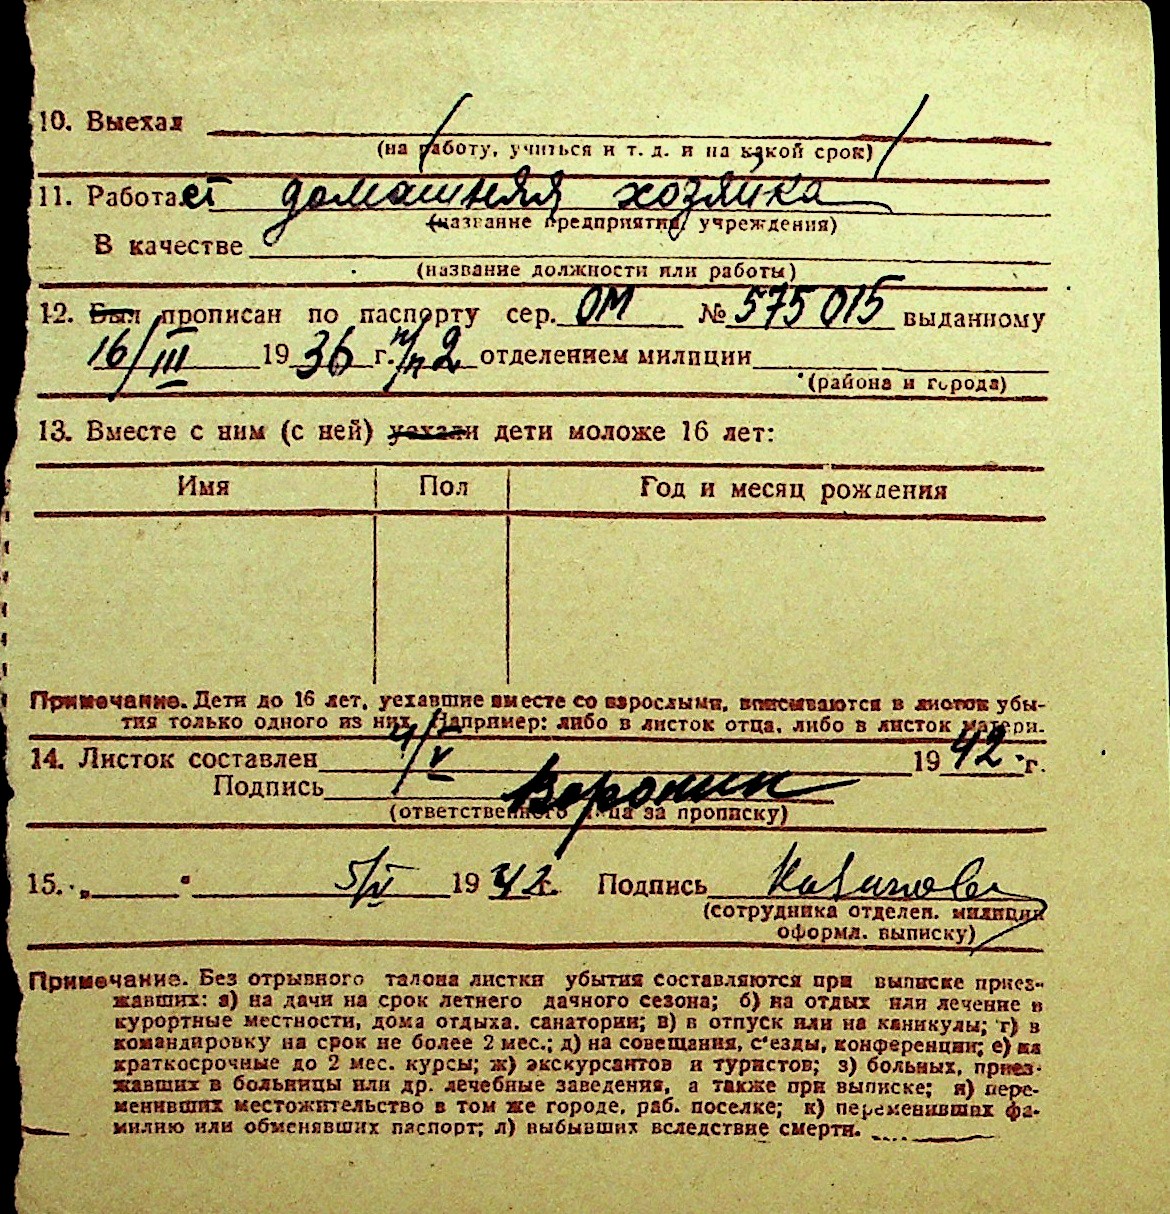 10. Выехал
(на работу, учиться и т. д. и на какой срок)
11. Работает домашняя хозяйка
(название предприятия, учреждения)
В качестве
(название должности или работы)
12. Был прописан по паспорту сер. ОМ № 575015 выданному
16/III 1936 г. 2 отделением милиции
(района и города)
13. Вместе с ним (с ней) уехали дети моложе 16 лет:
Имя Пол Год и месяц рождения
Примечание. Дети до 16 лет, уехавшие вместе со взрослыми, вписываются в листок убы-
тия только одного из них. Например: либо в листок отца, либо в листок матери.
14. Листок составлен 4/V 1942 г.
Подпись Воронин
(ответственного лица за прописку)
15. „ " 5/V 1942 г. Подпись
(сотрудника отделен. милиции
оформл. выписку)
Примечание. Без отрывного талона листки убытия составляются при выписке приез-
жавших: а) на дачи на срок летнего дачного сезона; б) на отдых или лечение в
курортные местности, дома отдыха, санатории; в) в отпуск или на каникулы; г) в
командировку на срок не более 2 мес.; д) на совещания, с'езды, конференции; е) на
краткосрочные до 2 мес. курсы; ж) экскурсантов и туристов; з) больных, приез-
жавших в больницы или др. лечебные заведения, а также при выписке; и) пере-
менивших местожительство в том же городе, раб. поселке; к) переменивших фа-
милию или обменявших паспорт; л) выбывших вследствие смерти.